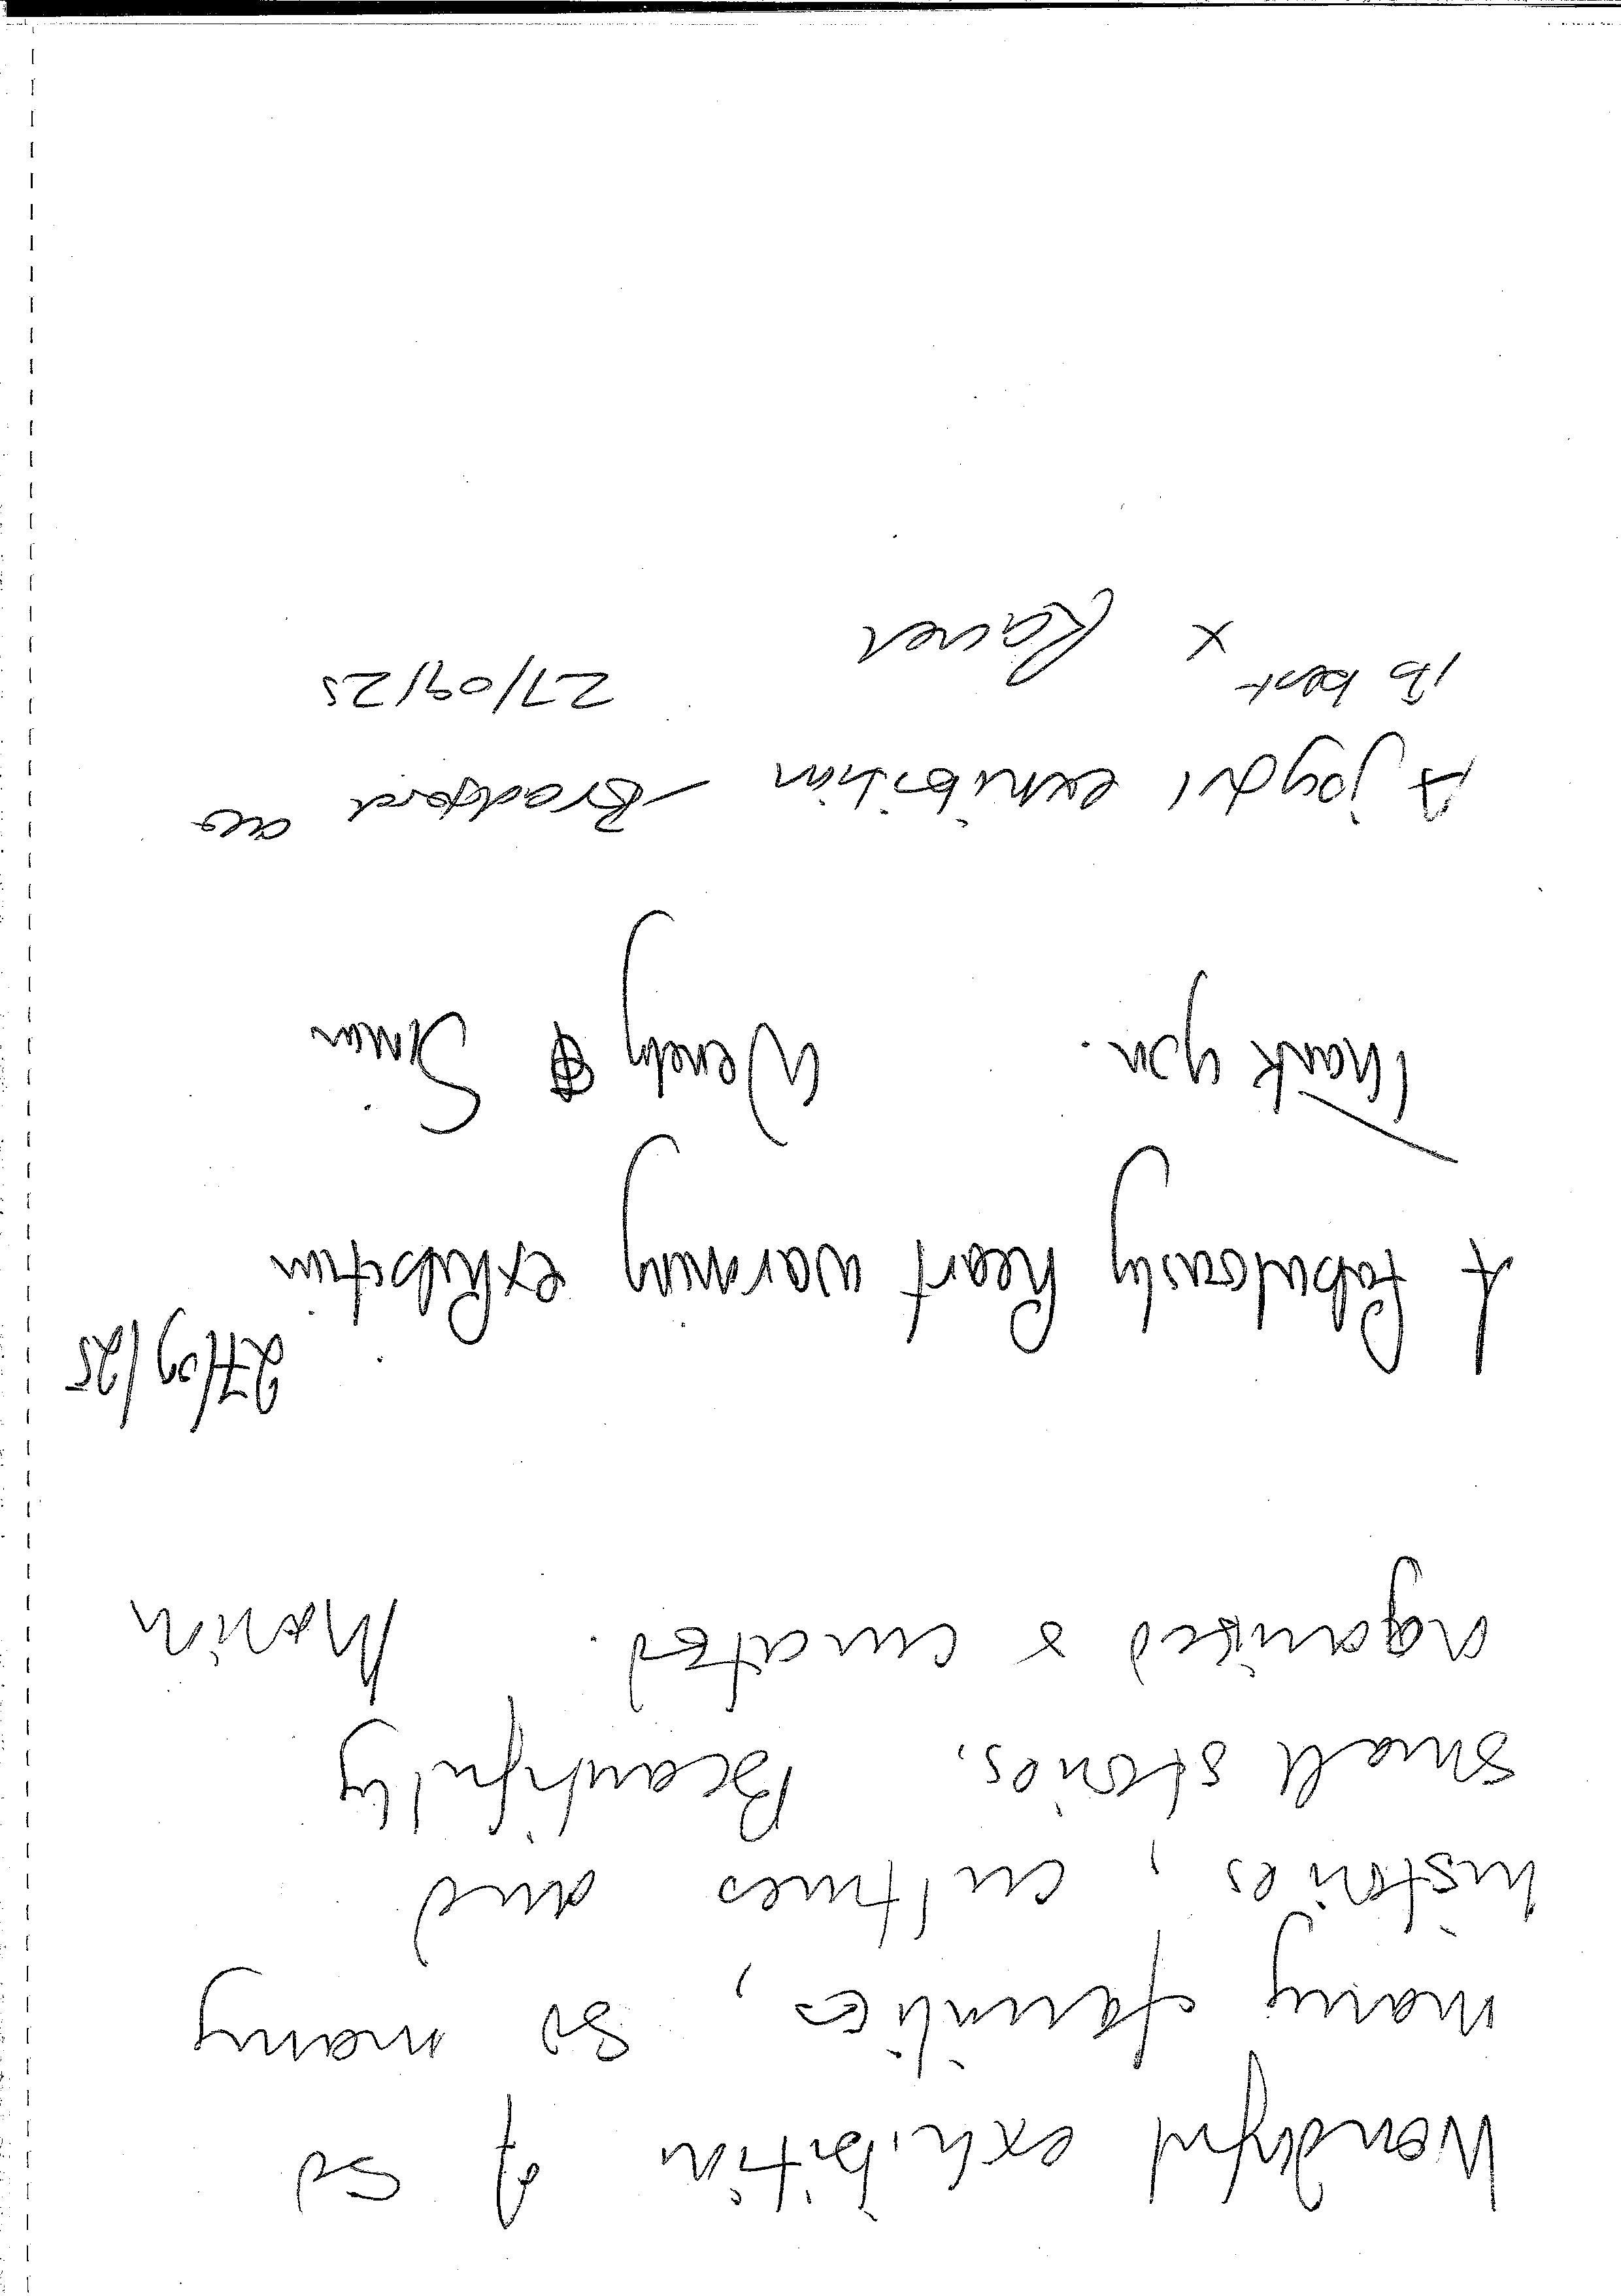 Wonderful exhibition of so
many families, so many
histories, cultures and
small stories. Beautifully
organised & curated.
27/09/25
A fabulously heart warming exhibition.
Thank you. Wendy & Simon
A joyful exhibition - Bradford at
its best x
27/09/25